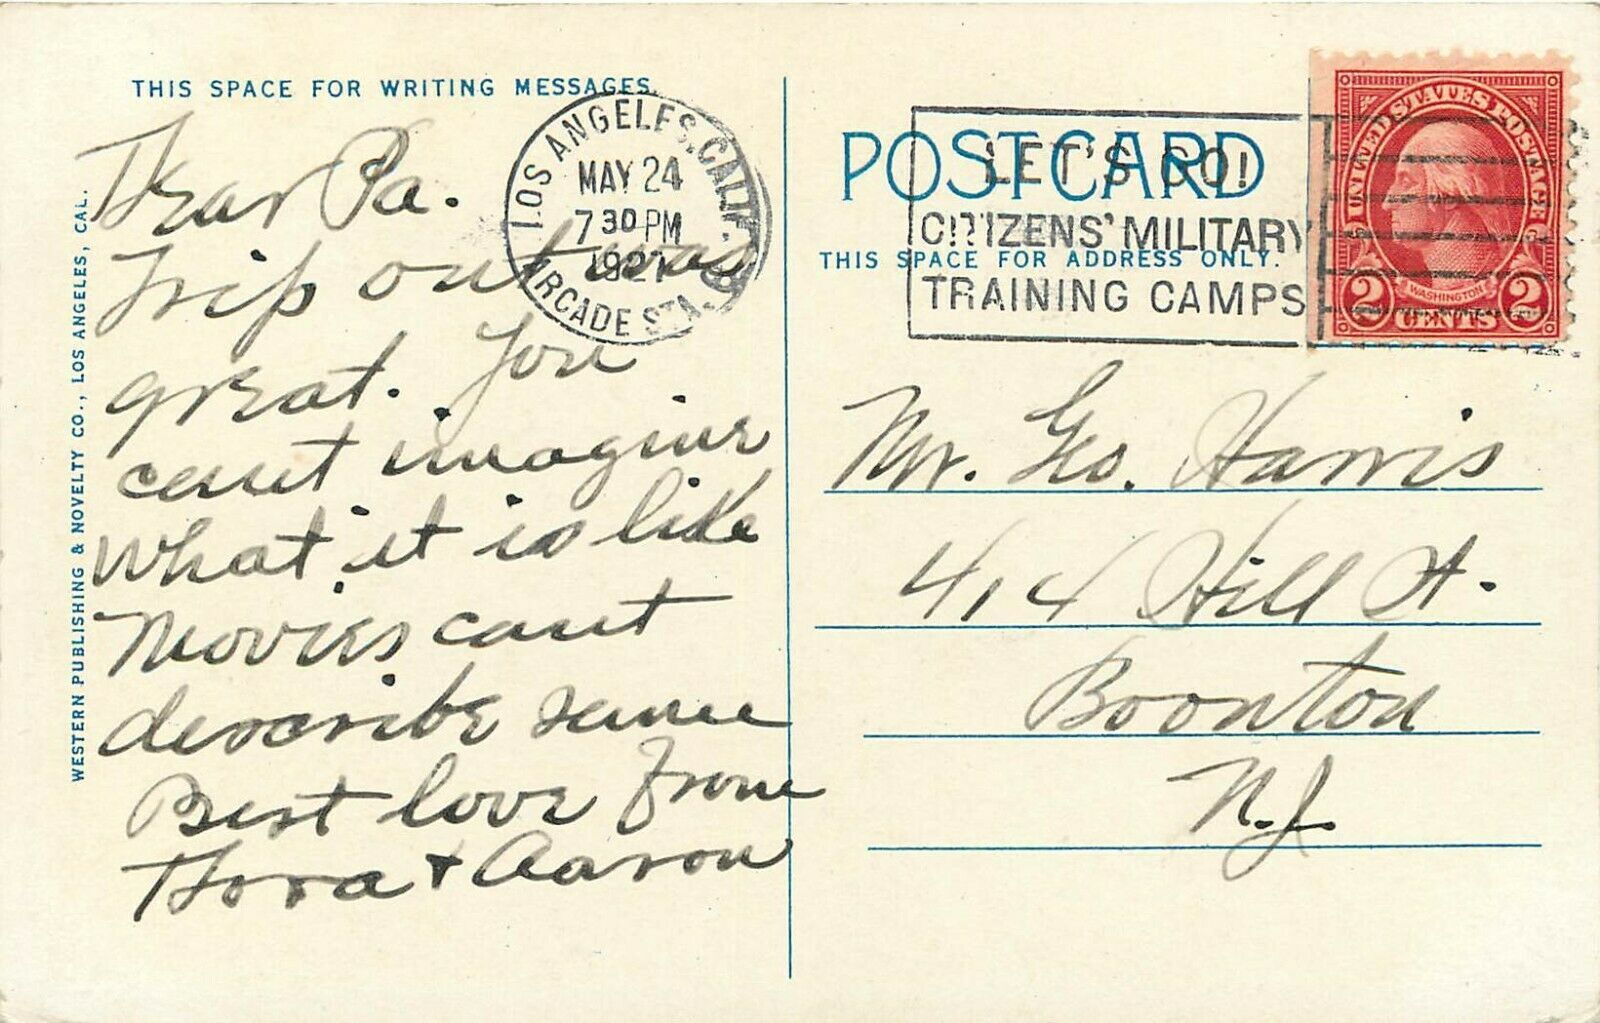 THIS SPACE FOR WRITING MESSAGES.
Dear Pa.
Trip out was
great. You
cant imagine
what it is like
Movies cant
describe same
Best love from
Thora + Aaron
WESTERN PUBLISHING & NOVELTY CO., LOS ANGELES, CAL.
LOS ANGELES, CALIF.
MAY 24
7 30 PM
1927
ARCADE STA.
POST CARD
LET'S GO!
CITIZENS' MILITARY
TRAINING CAMPS
THIS SPACE FOR ADDRESS ONLY.
UNITED STATES POSTAGE
WASHINGTON
2 CENTS 2
Mr. Geo. Harris
414 Hill St.
Boonton
N.J.